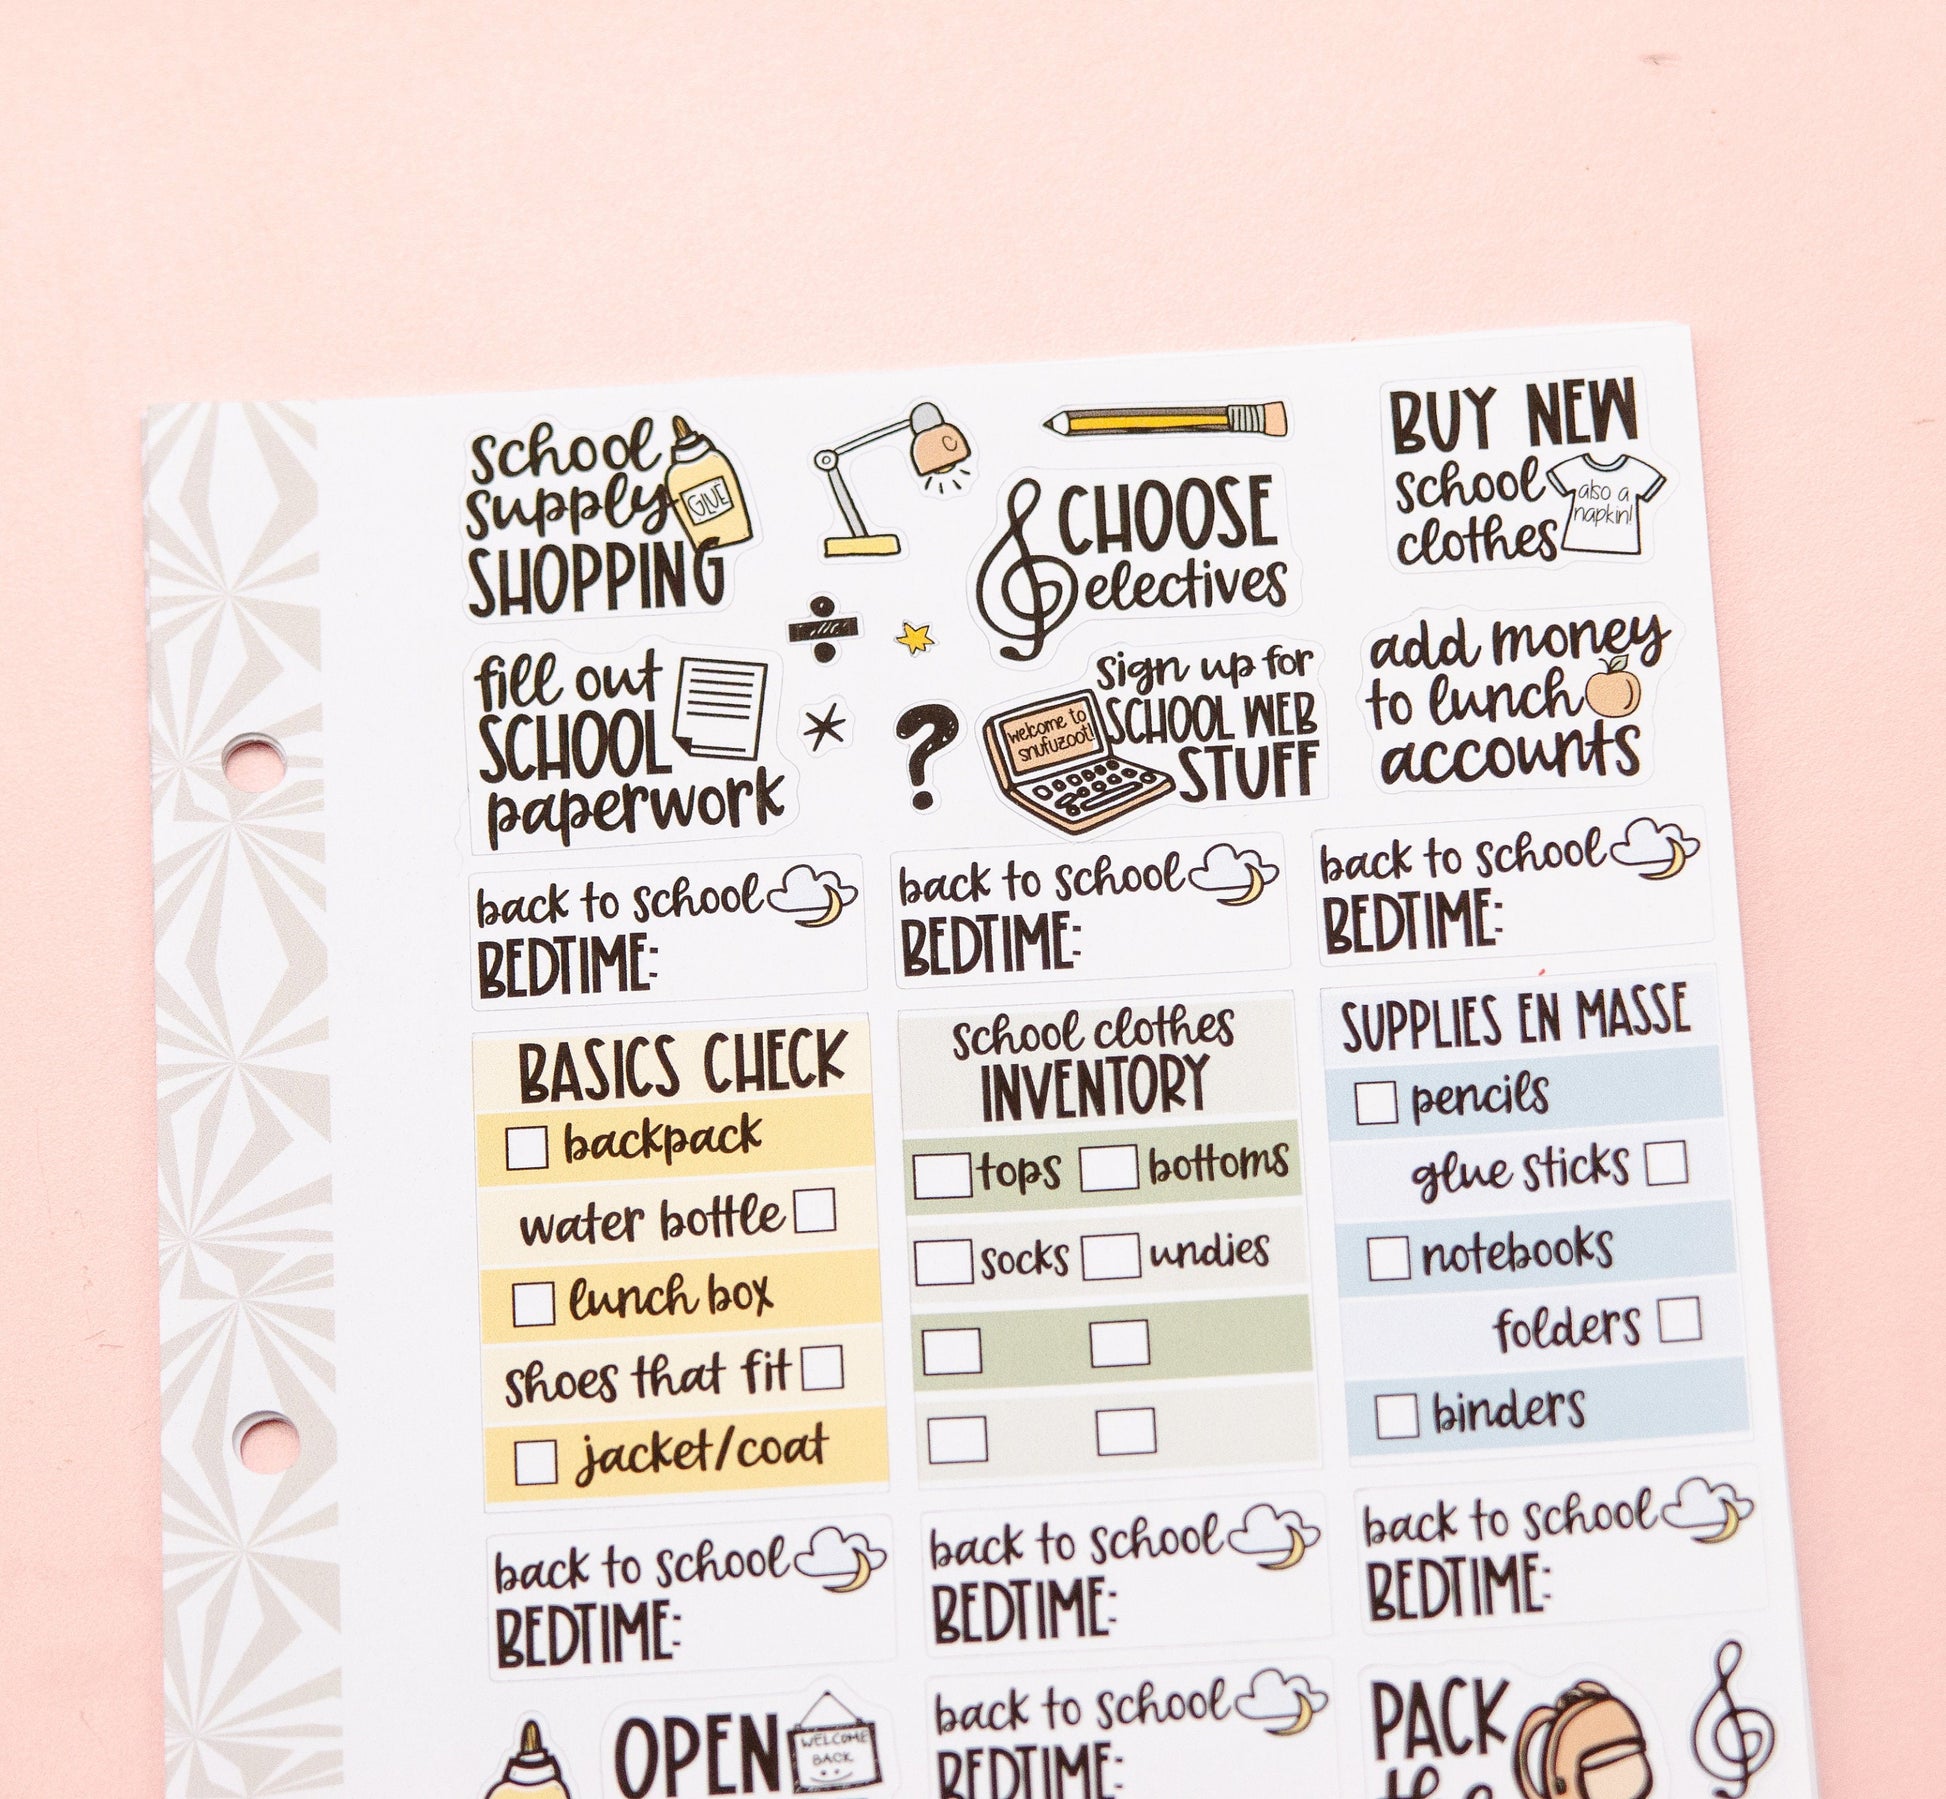 school
supply
SHOPPING
GLUE
C
CHOOSE
electives
BUY NEW
school
clothes
also a
napkin!
fill out
SCHOOL
paperwork
sign up for
SCHOOL WEB
STUFF
welcome to
snufuzoot!
add money
to lunch
accounts
back to school
BEDTIME:
back to school
BEDTIME:
back to school
BEDTIME:
BASICS CHECK
backpack
water bottle
lunch box
shoes that fit
jacket/coat
school clothes
INVENTORY
tops bottoms
socks undies
SUPPLIES EN MASSE
pencils
glue sticks
notebooks
folders
binders
back to school
BEDTIME:
back to school
BEDTIME:
back to school
BEDTIME:
OPEN
WELCOME
BACK
back to school
BEDTIME:
PACK
the